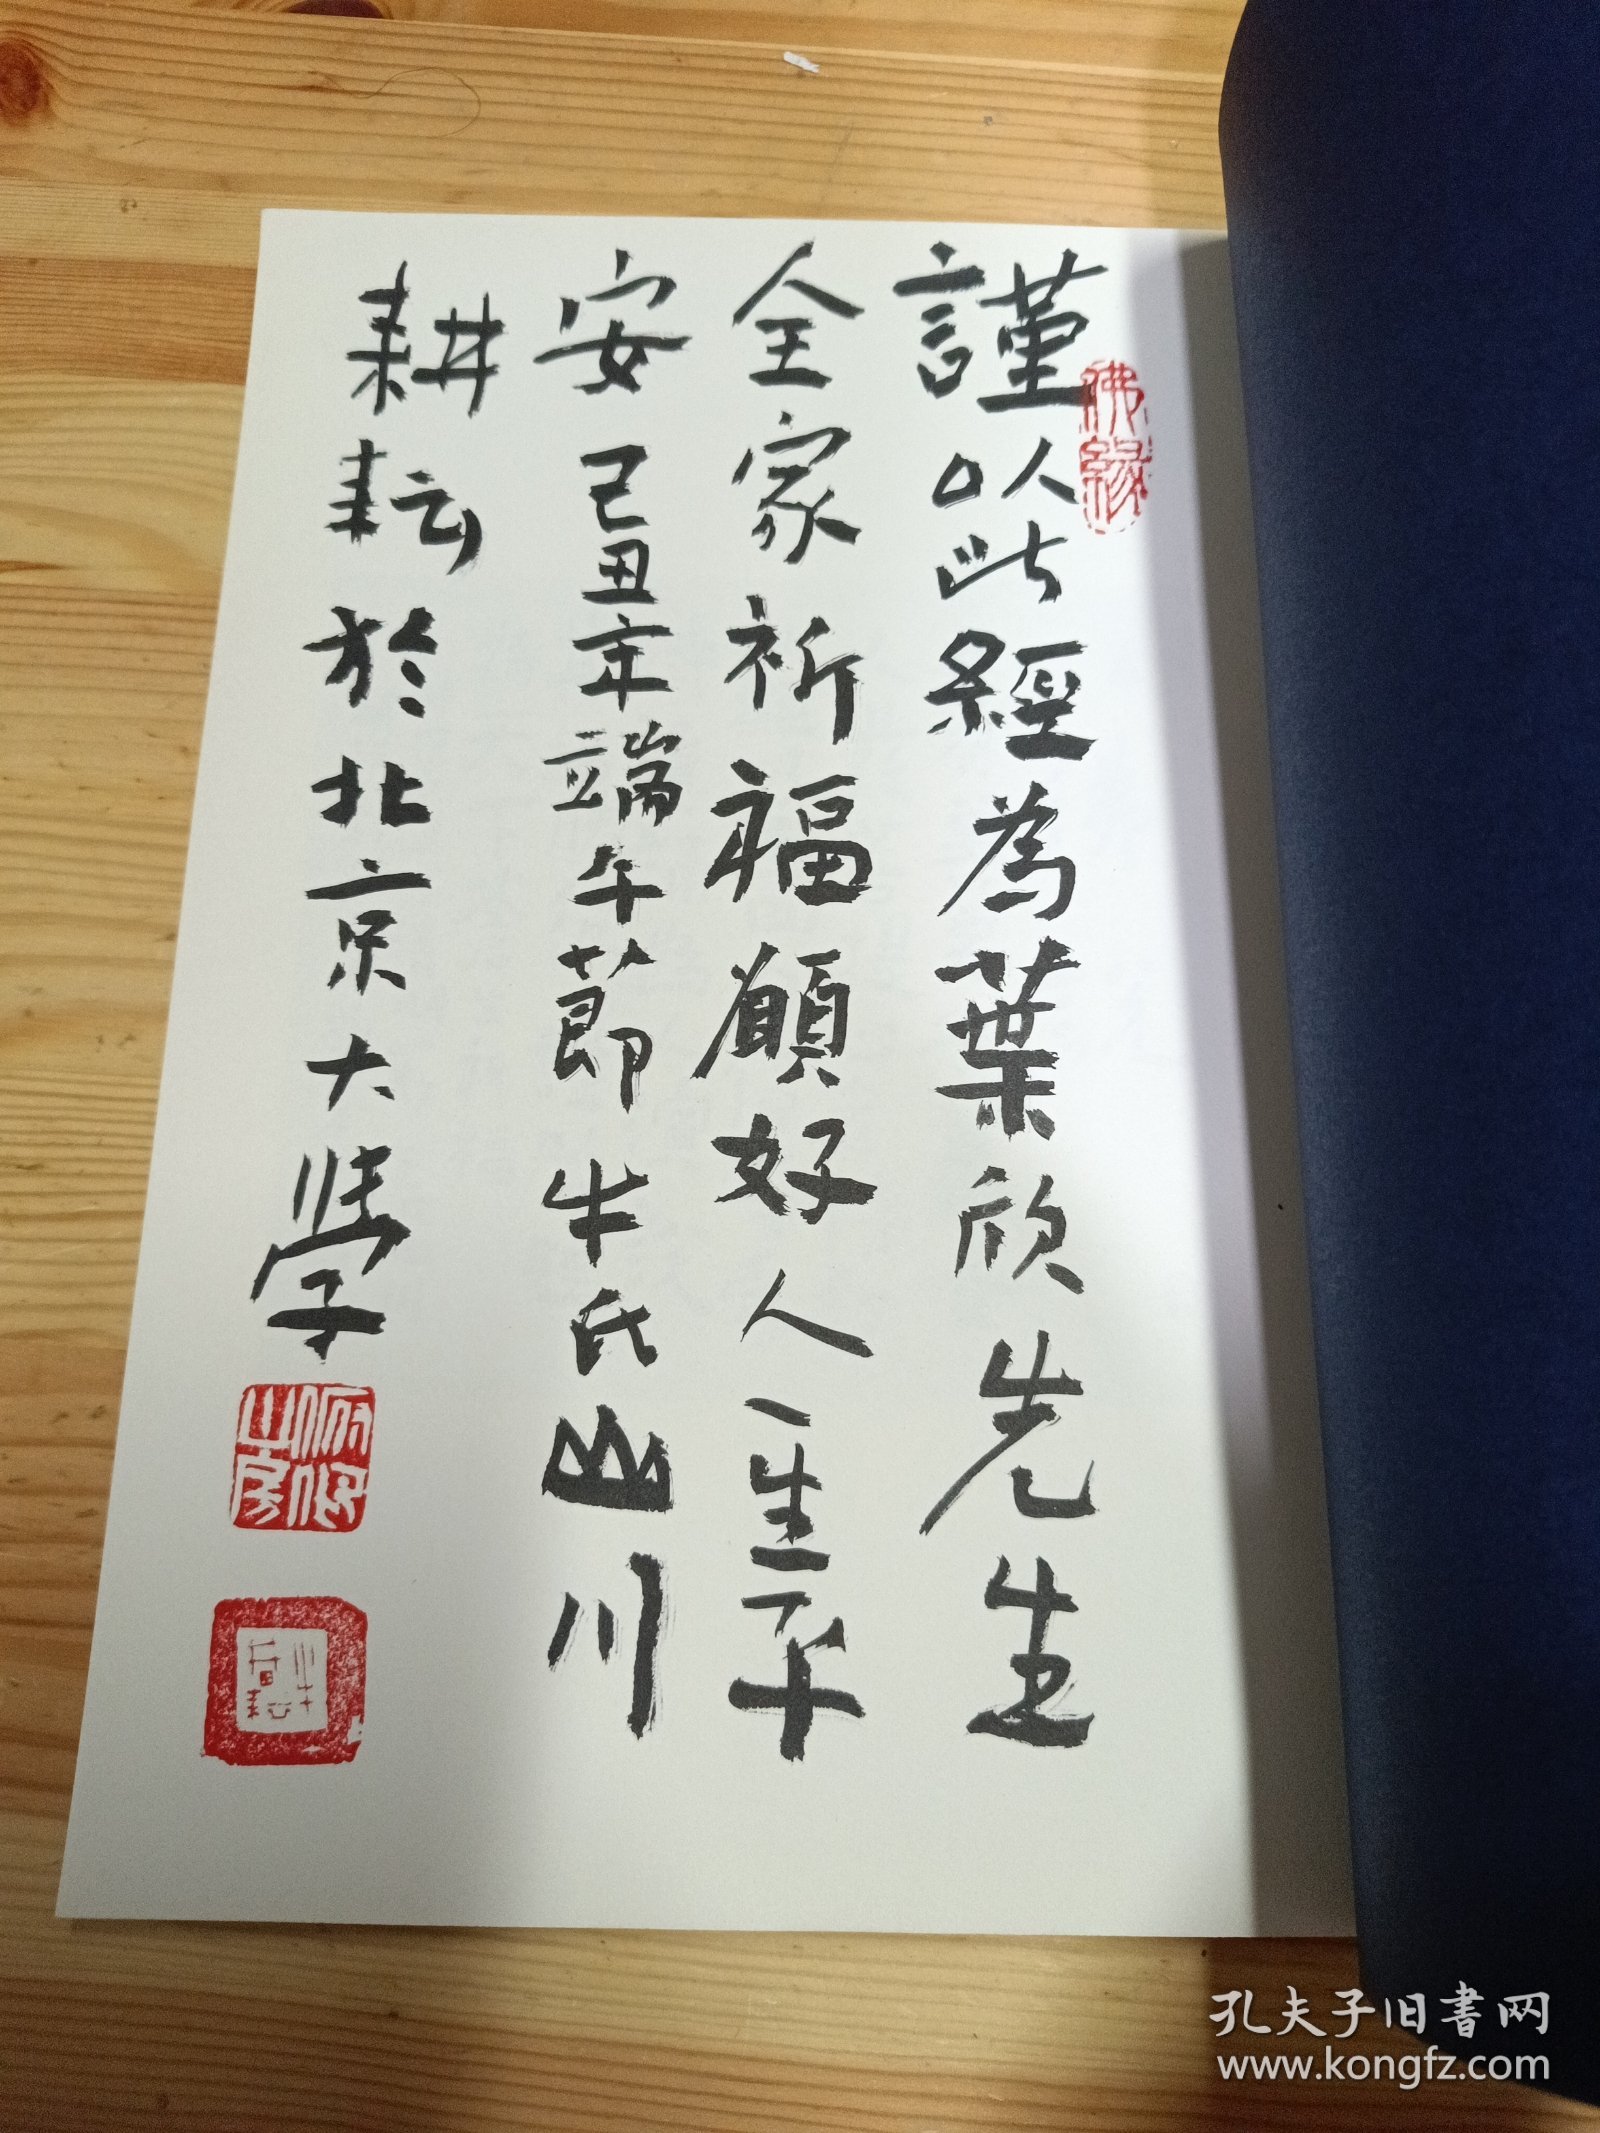 謹以此經為葉欣先生
全家祈福願好人一生平
安 己丑年端午節 牛氏山川
耕耘於北京大學
佛緣
孔夫子旧书网
www.kongfz.com